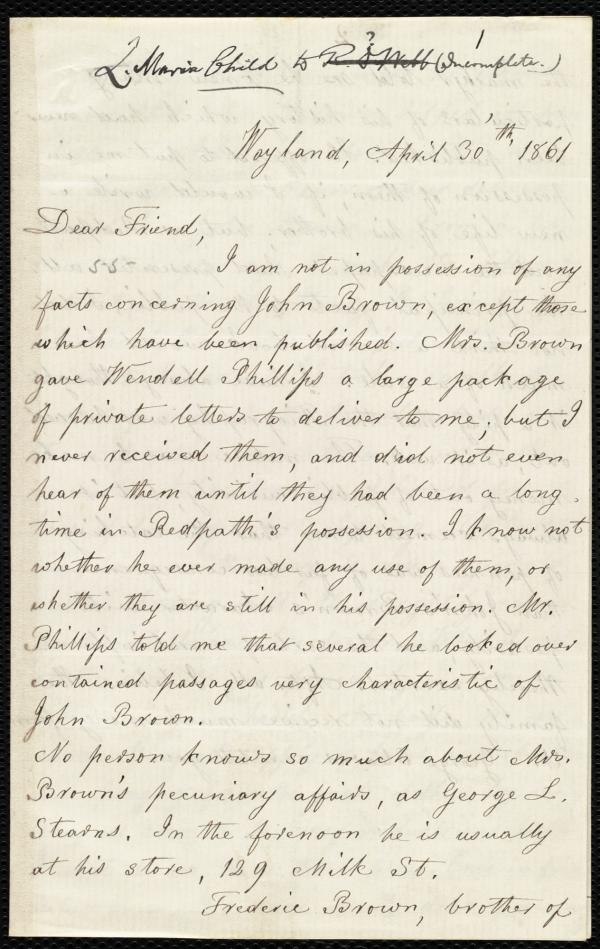 ?
L. Maria Child to R. D. Webb (Incomplete.)
Wayland, April 30'th, 1861
Dear Friend,
I am not in possession of any
facts concerning John Brown, except those
which have been published. Mrs. Brown
gave Wendell Phillips a large package
of private letters to deliver to me; but I
never received them, and did not even
hear of them until they had been a long
time in Redpath's possession. I know not
whether he ever made any use of them, or
whether they are still in his possession. Mr.
Phillips told me that several he looked over
contained passages very characteristic of
John Brown.
No person knows so much about Mrs.
Brown's pecuniary affairs, as George L.
Stearns. In the forenoon he is usually
at his store, 129 Milk St.
Frederic Brown, brother of